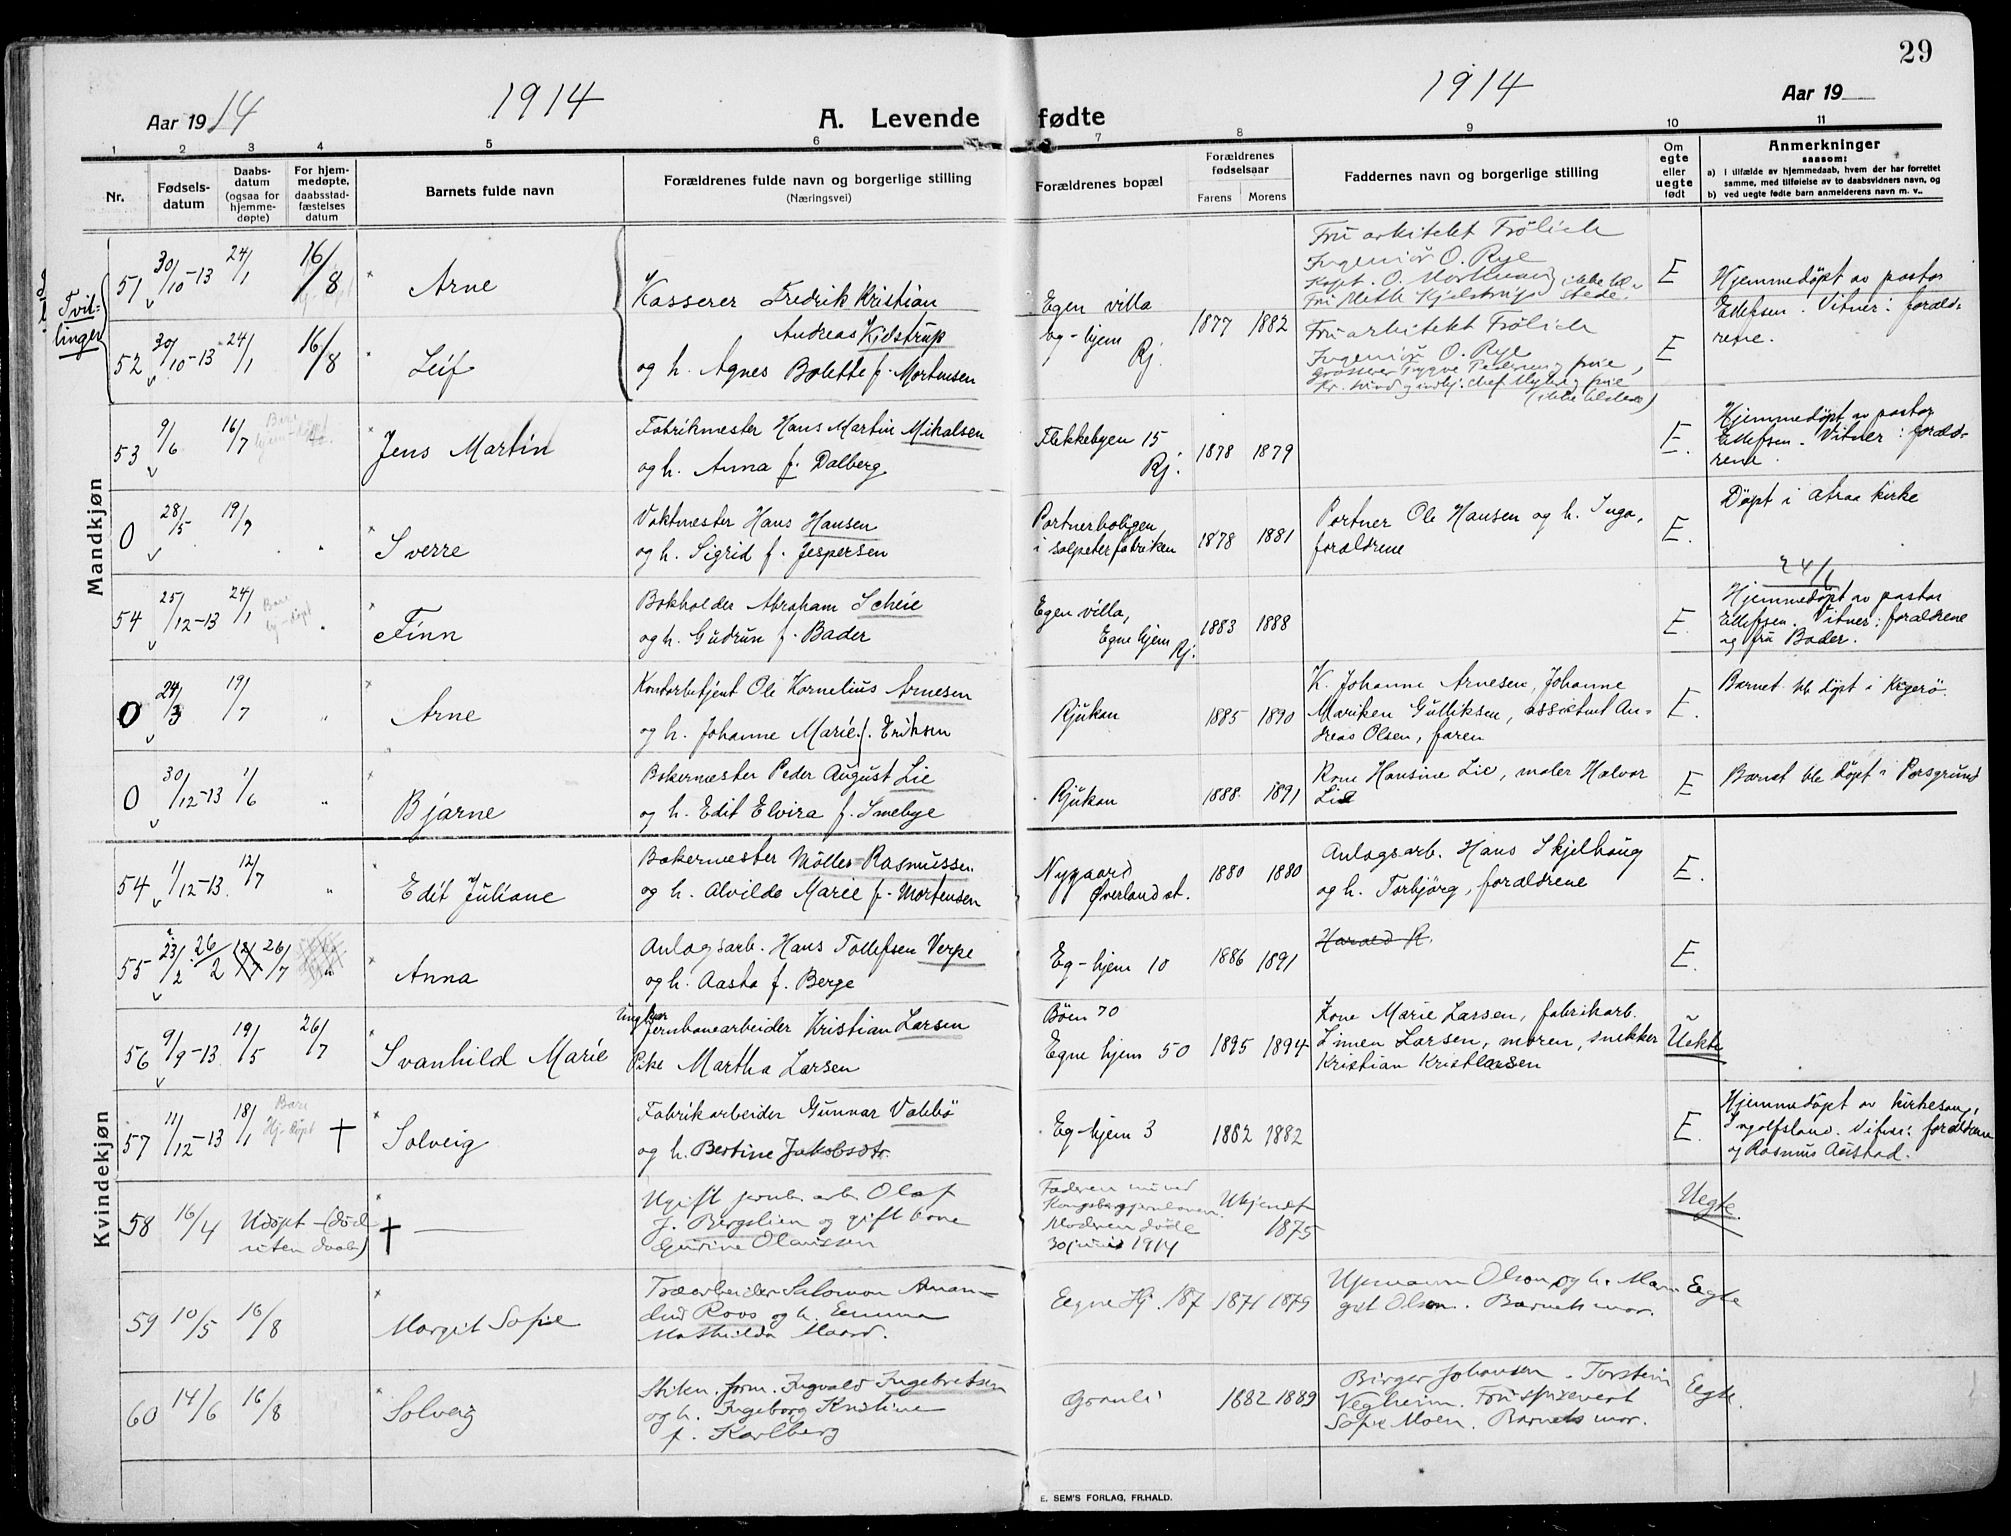 29
Aar 1914
1914
A. Levende fødte
1914
Aar 19
1 2 3 4 5 6 7 8 9 10 11
Nr.
Fødsels-
datum
Daabs-
datum
(ogsaa for
hjemme-
døpte)
For hjem-
medøpte,
daabsstad-
fæstelses
datum
Barnets fulde navn
Forældrenes fulde navn og borgerlige stilling
(Næringsvei)
Forældrenes bopæl
Forældrenes
fødselsaar
Farens Morens
Faddernes navn og borgerlige stilling
Om
egte
eller
uegte
født
Anmerkninger
saasom:
a) i tilfælde av hjemmedaab, hvem der har forrettet
samme, med tilføielse av to daabsvidners navn, og
b) ved uegte fødte barn anmelderens navn m. v..
Mandkjøn
Tvil-
linger
51 30/10-13 24/1 16/8 Arne
Kasserer Fredrik Kristian
Andreas Kjelstrup
og h. Agnes Bolette f. Mortensen
Egen villa
eg-hjem
Rj.
1877 1882
Fru arkitekt Frölich
Ingeniör O. Rye
E
Hjemmedøpt av pastor
Ellefsen. Vitner: foræld-
rene.
52 30/10-13 24/1 16/8 Leif
Fru arkitekt Frölich
Ingeniör O. Rye
(ikke tilstede)
E
53 9/6 16/7 Bare hjem-døpt Jens Martin
Fabrikmester Hans Martin Mikalsen
og h. Anna f. Dalberg
Flekkebyen 15
Rj.
1878 1879
E.
Hjemmedøpt av pastor
Ellefsen. Vitner: foræld-
rene.
0 28/5 19/7 " Sverre
Vaktmester Hans Hansen
og h. Sigrid f. Jespersen
Portnerboligen
i salpeterfabriken
1878 1881
Portner Ole Hansen og h. Inga,
forældrene
E.
Døpt i Atraa kirke
54 25/12-13 24/1 Bare hj-døpt " Finn
Bokholder Abraham Scheie
og h. Gudrun f. Bader
Egen villa,
Egne hjem Rj.
1883 1888
E.
24/1
Hjemmedøpt av pastor
Ellefsen. Vitner: forældrene
og fru Bader.
0 24/3 19/7 " Arne
Kontorbetjent Ole Kornelius Arnesen
og h. Johanne Marie f. Eriksen
Rjukan
1885 1890
K. Johanne Arnesen, Johanne
Mariken Gulliksen, assistent An-
dreas Olsen, faren
E.
Barnet ble døpt i Kragerö.
0 30/12-13 1/6 " Bjarne
Bakermester Peder August Lie
og h. Edit Elvira f. Smebye
Rjukan
1888 1891
Kone Hansine Lie, maler Halvor
Lie
E
Barnet ble døpt i Porsgrund
Kvindekjøn
54 1/12-13 12/7 " Edit Juliane
Bakermester Möller Rasmussen
og h. Alvilde Marie f. Mortensen
Nygaard
Øverland st.
1880 1880
Anlagsarb. Hans Skjelhaug
og h. Torbjörg, forældrene
E.
55 23/2 26/2 12/7 26/7 Anna
Anlagsarb. Hans Tollefsen Verpe
og h. Aasta f. Berge
Eg-hjem 10
1886 1891
Harald R.
E.
56 9/9-13 19/5 26/7 Svanhild Marie
Ungkar
Jernbanearbeider Kristian Larsen
Pike Martha Larsen
Bøen 70
Egne hjem 50
1895 1894
Kone Marie Larsen, fabrikarb.
Simen Larsen, moren, snekker
Kristian Kristiansen
Uekte
57 11/12-13 18/1 Bare Hj-døpt † Solveig
Fabrikarbeider Gunnar Vabbö
og h. Bertine Jakobsdtr.
Eg-hjem 3
1882 1882
E.
Hjemmedøpt av kirkesang.
Ingolfsland. Vitner: forældrene
og Rasmus Austad.
58 16/4 Udøpt - (död
uten daab) †
Ugift jernb. arb. Olaf
J. Bergslien og gift kone
Gurine Olaussen
Faderen nu ved
Kongsbergjernbanen.
Moderen døde
30 juni 1914
Ukjendt
1875
Uegte.
59 10/5 16/8 Margit Sofie
Træarbeider Salomon Aman-
dus Roos og h. Emma
Mathilda Maard.
Egne Hj. 187
1871 1879
Hjermann Olsen og h. Mar-
git Olsen. Barnets mor.
Egte
60 14/6 16/8 Solveig
Stiken. form. Ingvald Ingebretsen
og h. Ingeborg Kristine
f. Karlberg
Granli
1882 1889
Birger Johansen. Torstein
Vegheim. Fru spisevert
Sofie Moen. Barnets mor.
Egte.
E. SEM'S FORLAG, FR.HALD.